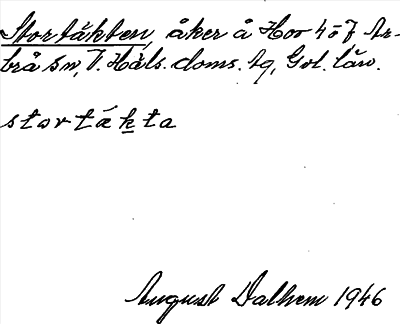 Stortäkten, åker å Hov 4 o 7 Ar-
brå sn, V. Häls. doms. tg, Gvl. län.
stortäkta
August Dalhem 1946